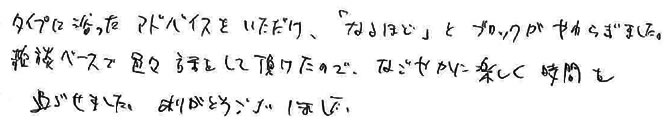 タイプに沿ったアドバイスをいただけ、「なるほど」とブロックがやわらぎました。
雑談ベースで色々話をして頂けたので、なごやかに楽しく時間を
過ごせました。ありがとうございました。